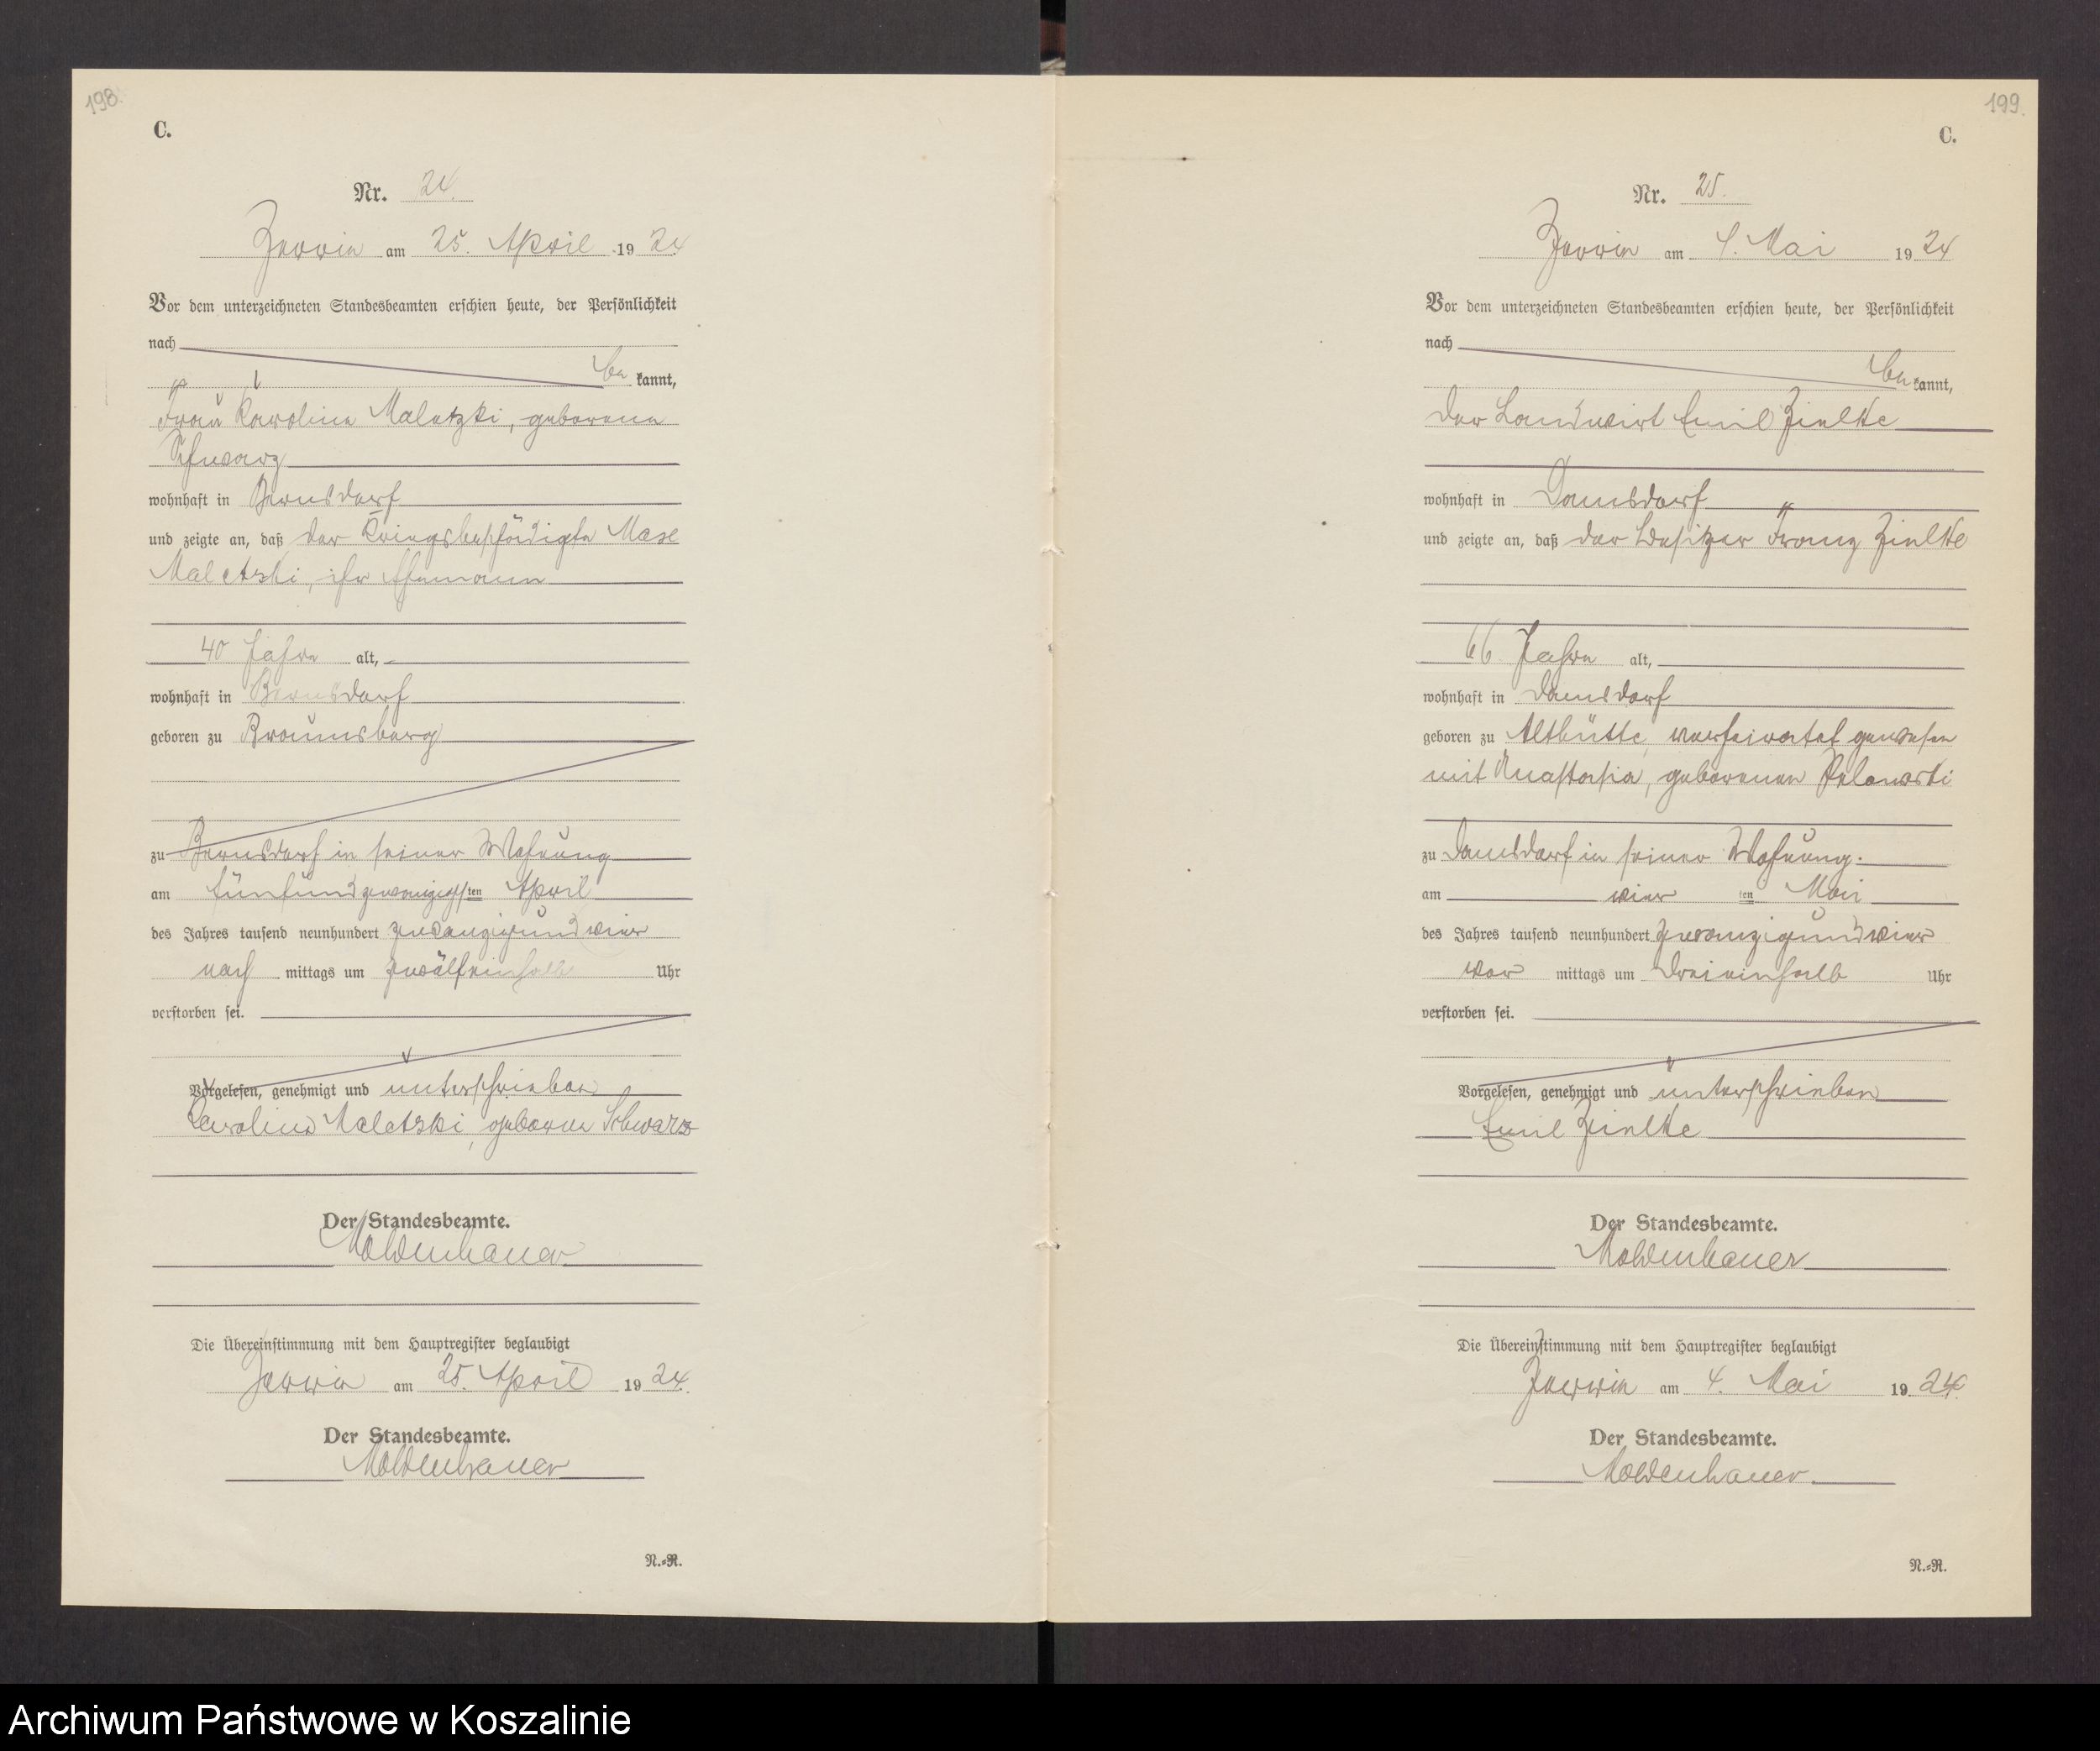 198.
C.
Nr. 24.
Zerrin am 25. April 1924
Vor dem unterzeichneten Standesbeamten erschien heute, der Persönlichkeit
nach
be kannt,
Frau Karoline Maletzki, geborene
Schwarz
wohnhaft in Bernsdorf
und zeigte an, daß der Kriegsbeschädigte Max
Maletzki, ihr Ehemann
40 Jahre alt,
wohnhaft in Bernsdorf
geboren zu Braunsberg
zu Bernsdorf in seiner Wohnung
am fünfundzwanzigsten April
des Jahres tausend neunhundert zwanzigundvier
nach mittags um zwölfeinhalb Uhr
verstorben sei.
Vorgelesen, genehmigt und unterschrieben
Karoline Maletzki, geborene Schwarz
Der Standesbeamte.
Moldenhauer
Die Übereinstimmung mit dem Hauptregister beglaubigt
Zerrin am 25. April 1924.
Der Standesbeamte.
Moldenhauer
N.-R.
199.
C.
Nr. 25.
Zerrin am 4. Mai 1924
Vor dem unterzeichneten Standesbeamten erschien heute, der Persönlichkeit
nach
be kannt,
der Landwirt Emil Zielke
wohnhaft in Damsdorf
und zeigte an, daß der Besitzer Franz Zielke
66 Jahre alt,
wohnhaft in Damsdorf
geboren zu Althütte, verheiratet gewesen
mit Anastasia, geborenen
zu Damsdorf in seiner Wohnung.
am vier ten Mai
des Jahres tausend neunhundert zwanzigundvier
vor mittags um dreieinhalb Uhr
verstorben sei.
Vorgelesen, genehmigt und unterschrieben
Emil Zielke
Der Standesbeamte.
Moldenhauer
Die Übereinstimmung mit dem Hauptregister beglaubigt
Zerrin am 4. Mai 1924.
Der Standesbeamte.
Moldenhauer
N.-R.
Archiwum Państwowe w Koszalinie